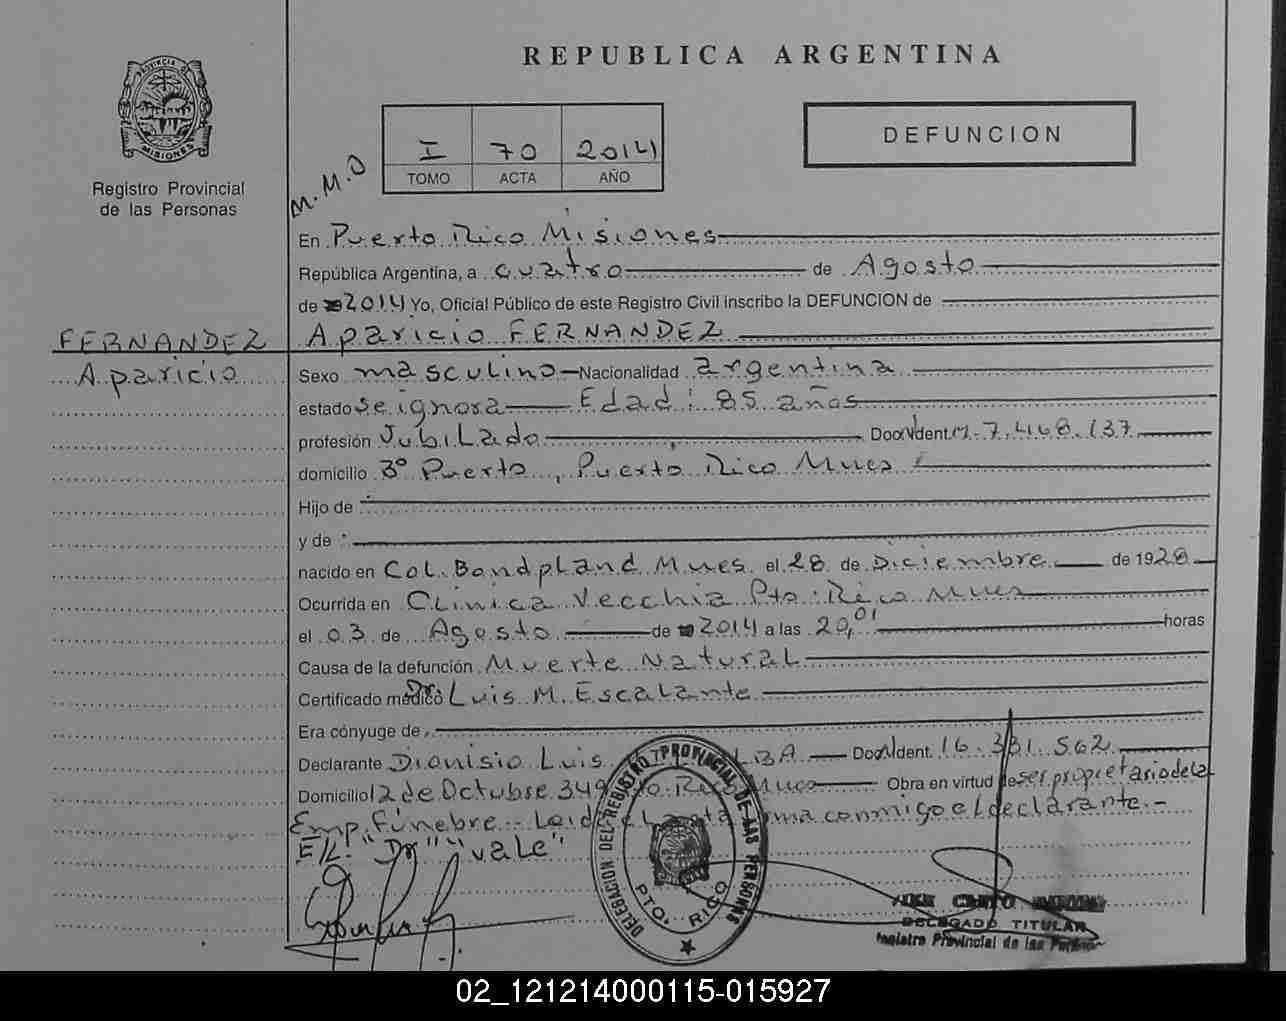 REPUBLICA ARGENTINA
PROVINCIA DE
MISIONES
Registro Provincial
de las Personas
I 70 2014
TOMO ACTA AÑO
DEFUNCION
M.M.O
En Puerto Rico Misiones
República Argentina, a cuatro de Agosto
de 2014 Yo, Oficial Público de este Registro Civil inscribo la DEFUNCION de
FERNANDEZ
Aparicio
Aparicio FERNANDEZ
Sexo masculino Nacionalidad argentina
estado se ignora Edad: 85 años
profesión Jubilado Doc. Ident. M. 7.468.137
domicilio 3° Puerto, Puerto Rico Mnes
Hijo de
y de
nacido en Col. Bondpland Mnes el 28 de Diciembre de 1928
Ocurrida en Clinica Vecchia Pto. Rico Mnes
el 03 de Agosto de 2014 a las 20,01 horas
Causa de la defunción Muerte Natural
Certificado médico Dr Luis M. Escalante
Era cónyuge de
Declarante Dionisio Luis Doc. Ident. 16.331.562
Domicilio 12 de Octubre 349 Pto Rico Mnes Obra en virtud de ser propietario de la
Emp. Fúnebre Leida el acta firma conmigo el declarante.-
E/L: "Dr" "vale"
DELEGACION DEL REGISTRO PROVINCIAL DE LAS PERSONAS
PTO. RICO
DELEGADO TITULAR
Registro Provincial de las Personas
02_121214000115-015927